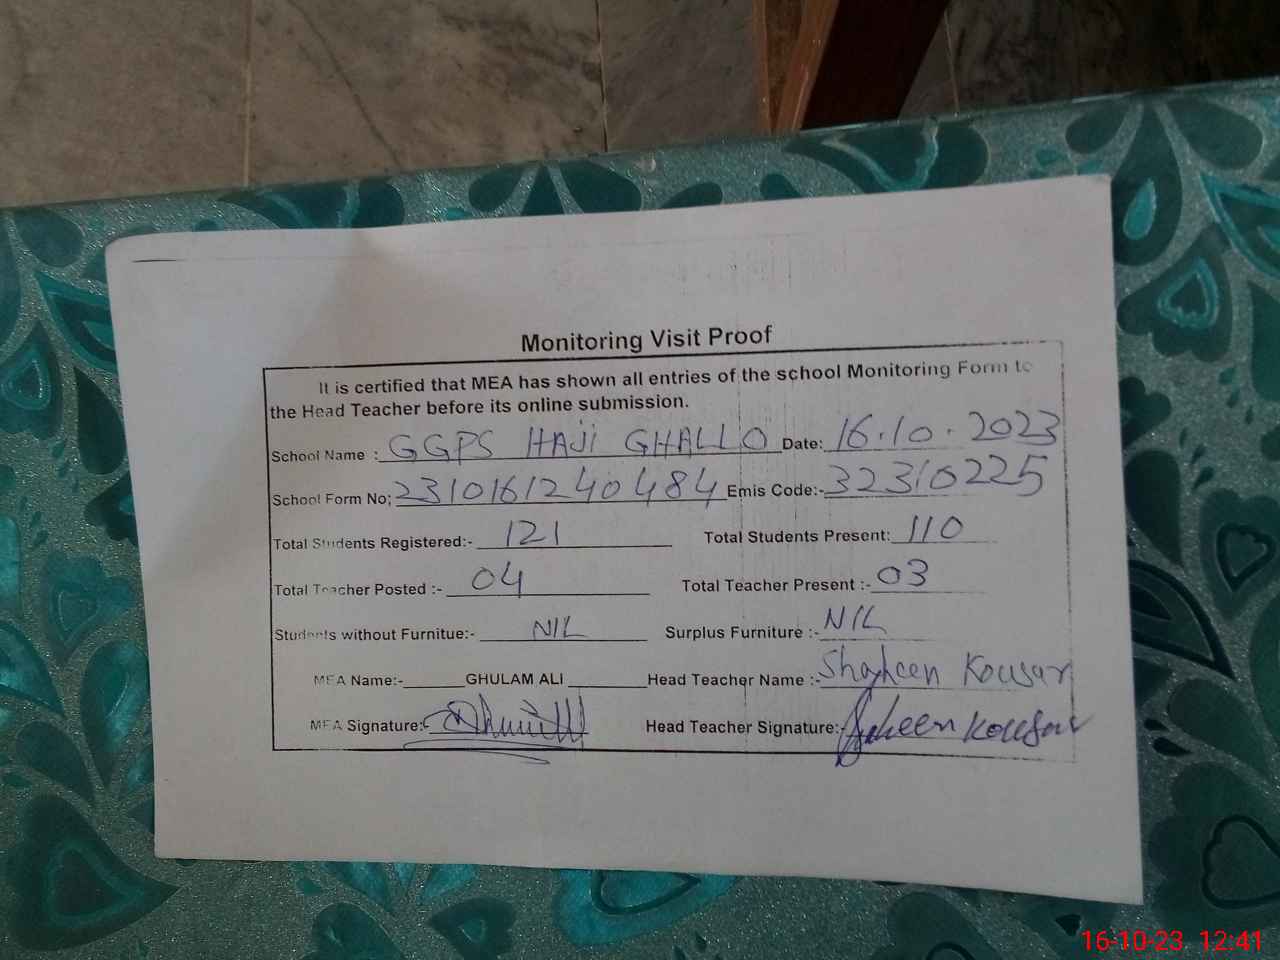 Monitoring Visit Proof
It is certified that MEA has shown all entries of the school Monitoring Form to
the Head Teacher before its online submission.
School Name : GGPS HAJI GHALLO Date: 16.10.2023
School Form No; 2310161240484 Emis Code:- 32310225
Total Students Registered:- 121 Total Students Present: 110
Total Teacher Posted :- 04 Total Teacher Present :- 03
Students without Furnitue:- NIL Surplus Furniture :- NIL
MEA Name:- GHULAM ALI Head Teacher Name :- Shaheen Kousar
MEA Signature: Head Teacher Signature:- Shaheen Kousar
16-10-23 12:41